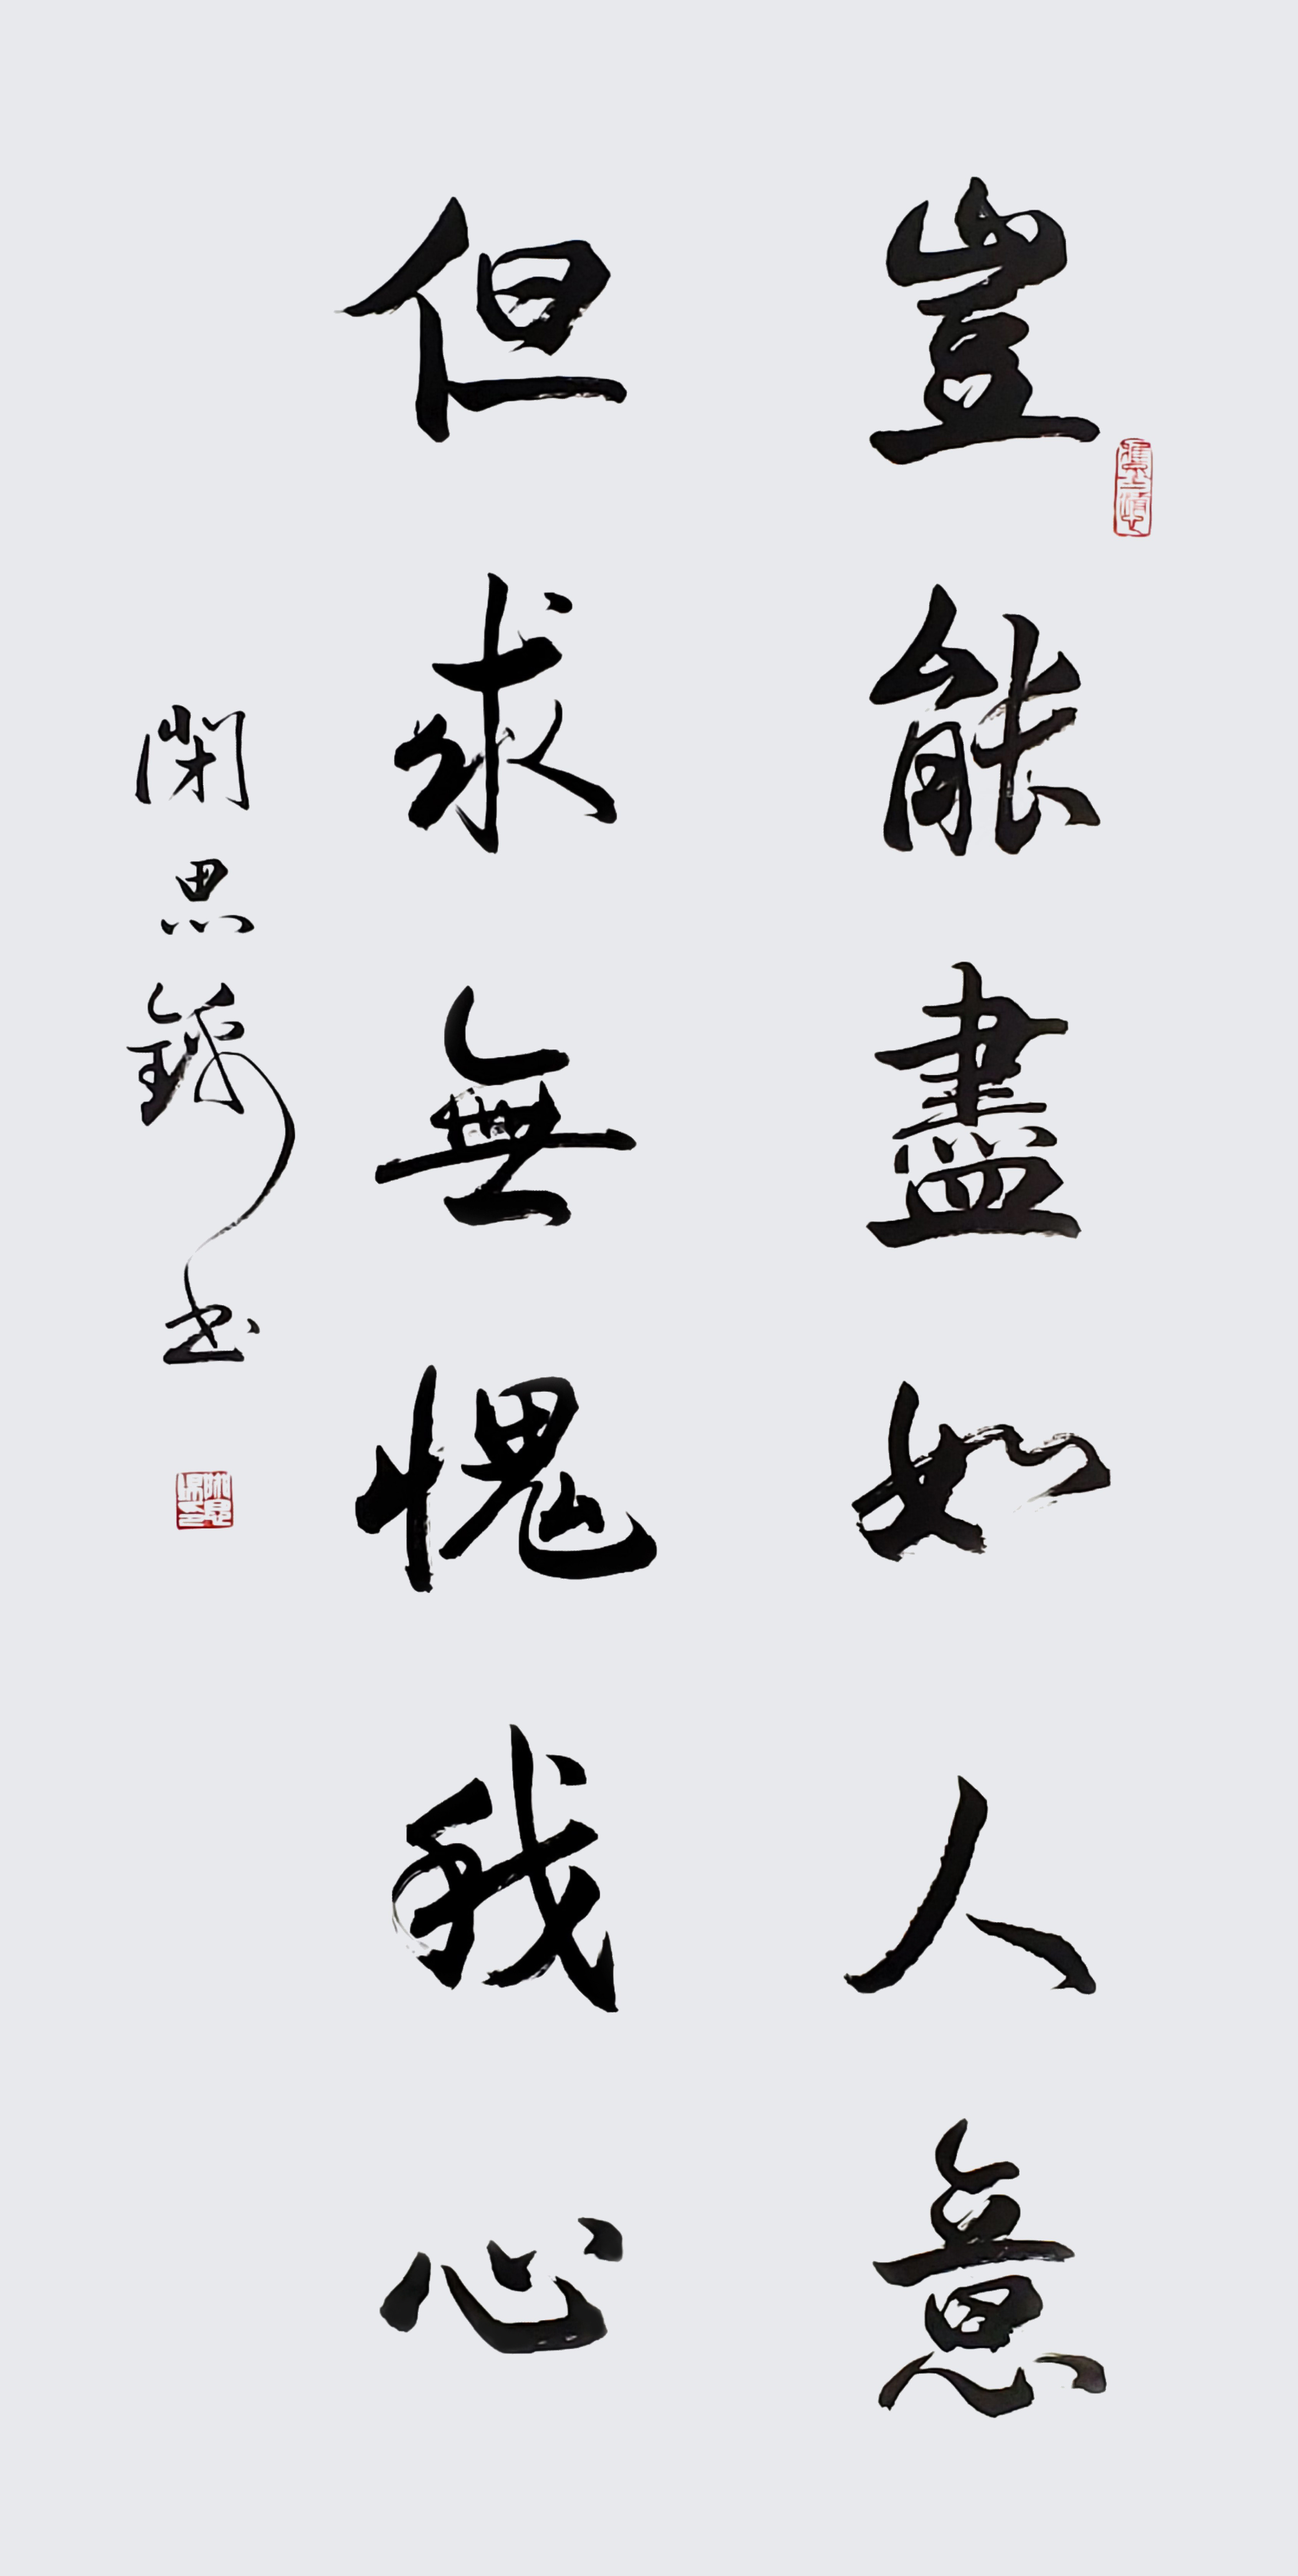 豈能盡如人意
但求無愧我心
閉思錦书